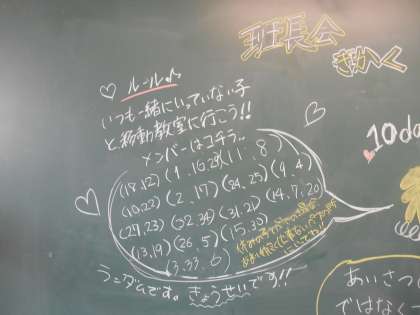 班長会
きかく
ルール♪
いつも一緒にいっていない子
と移動教室に行こう!!
メンバーはコチラ↓
(1, 16, 29) (11, 8)
(18, 12) (2, 17) (24, 25) (9, 4)
(10, 22) (32, 34) (31, 21) (14, 7, 20)
(27, 23) (26, 5) (15, 30)
(13, 19)
(3, 33, 6)
ランダムです。きょうせいです!!
10da
あいさつ
ではなく